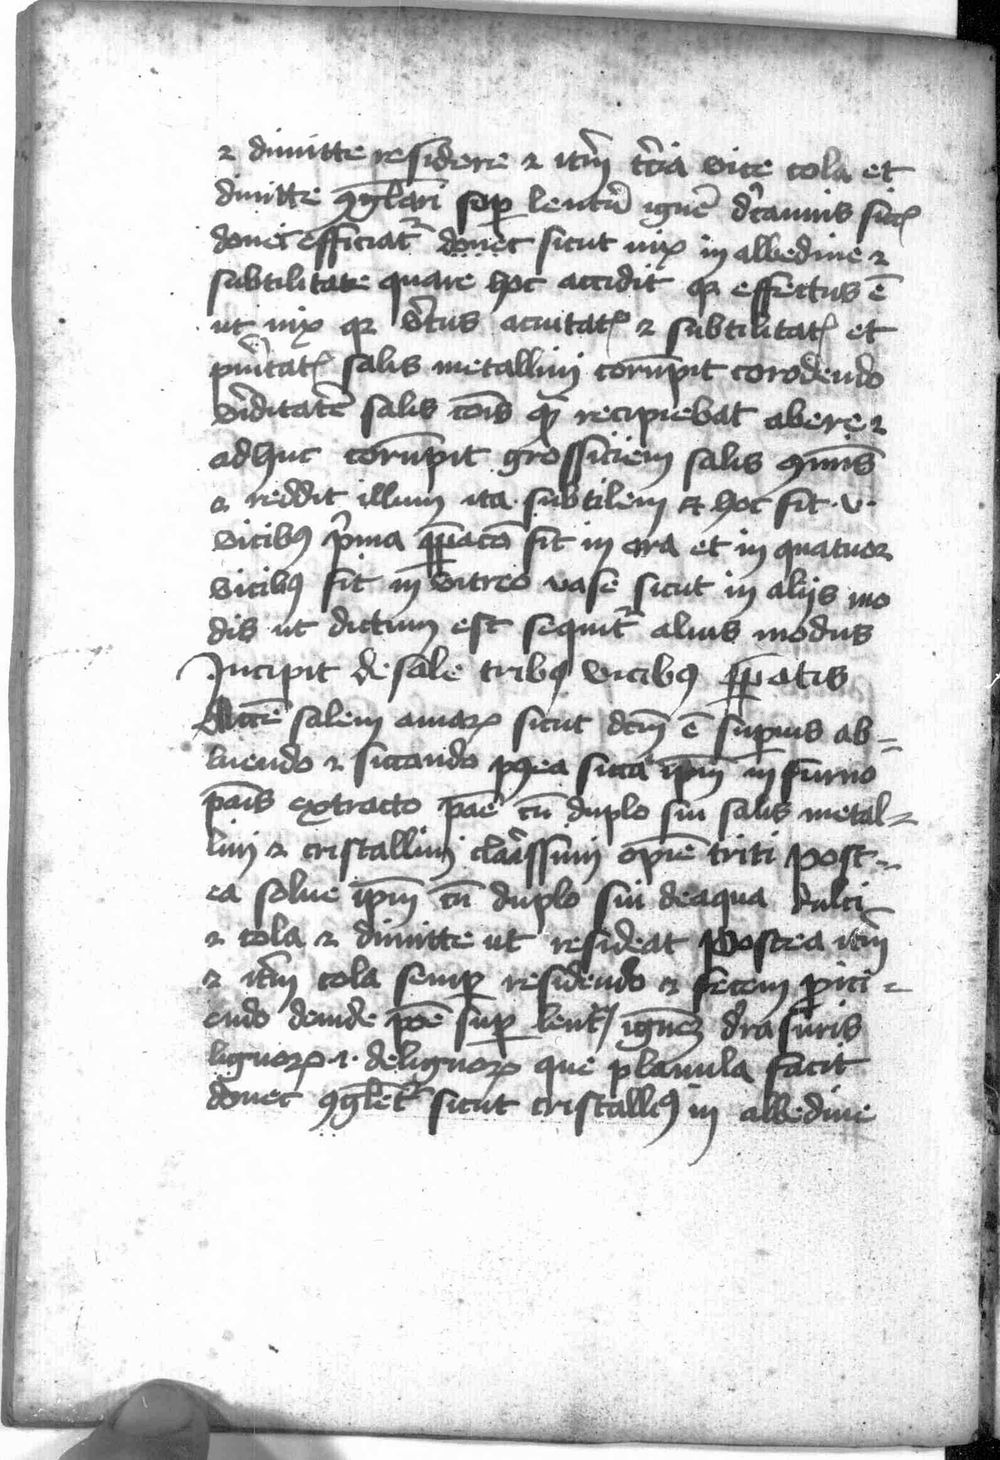 & dimitte residere & itm̄ tc̄ia vice cola et
dimitte ꝯgl̄ari sup̱ lentū ignē
donec efficiat᷑ donec sicut nix in albedine &
subtilitate quare hoc accidit qꝛ effectus ē
ut nix qꝛ v̄tus acuitatꝭ & subtilitatꝭ et
puritatꝭ salis metallini corrūpit corodendo
v̄iditatē salis cōis recipiebat ab ere &
adhuc corrūpit grossiciem salis ꝯmūis
& reddit illum ita subtilem & hoc fit · v ·
vicibꝯ p̄ma p̄pacō fit in et in quatuor
vicibꝯ fit in vitreo vase sicut in aliis mo
dis ut dictum est sequit᷑ alius modus
Incipit de sale tribꝯ vicibꝯ p̄patis
Accipe salem amarꝝ sicut dcm̄ ē superius ab=
luendo & siccando postea sicca ip̄m in furno
panis extracto pone cū duplo sui salis metal=
lini & cristallini clarissimi optime triti post=
ea solve ip̄m cū duplo sui de aqua dulci
& cola & dimitte ut resideat postea itm̄
& itm̄ cola semꝑ residendo & fecem ꝓici=
endo deinde pone suꝑ ignem rasuris
lignorꝝ · i · de lignorꝝ que planula facit
donec ꝯgl̄et᷑ sicut cristallꝯ in albedine